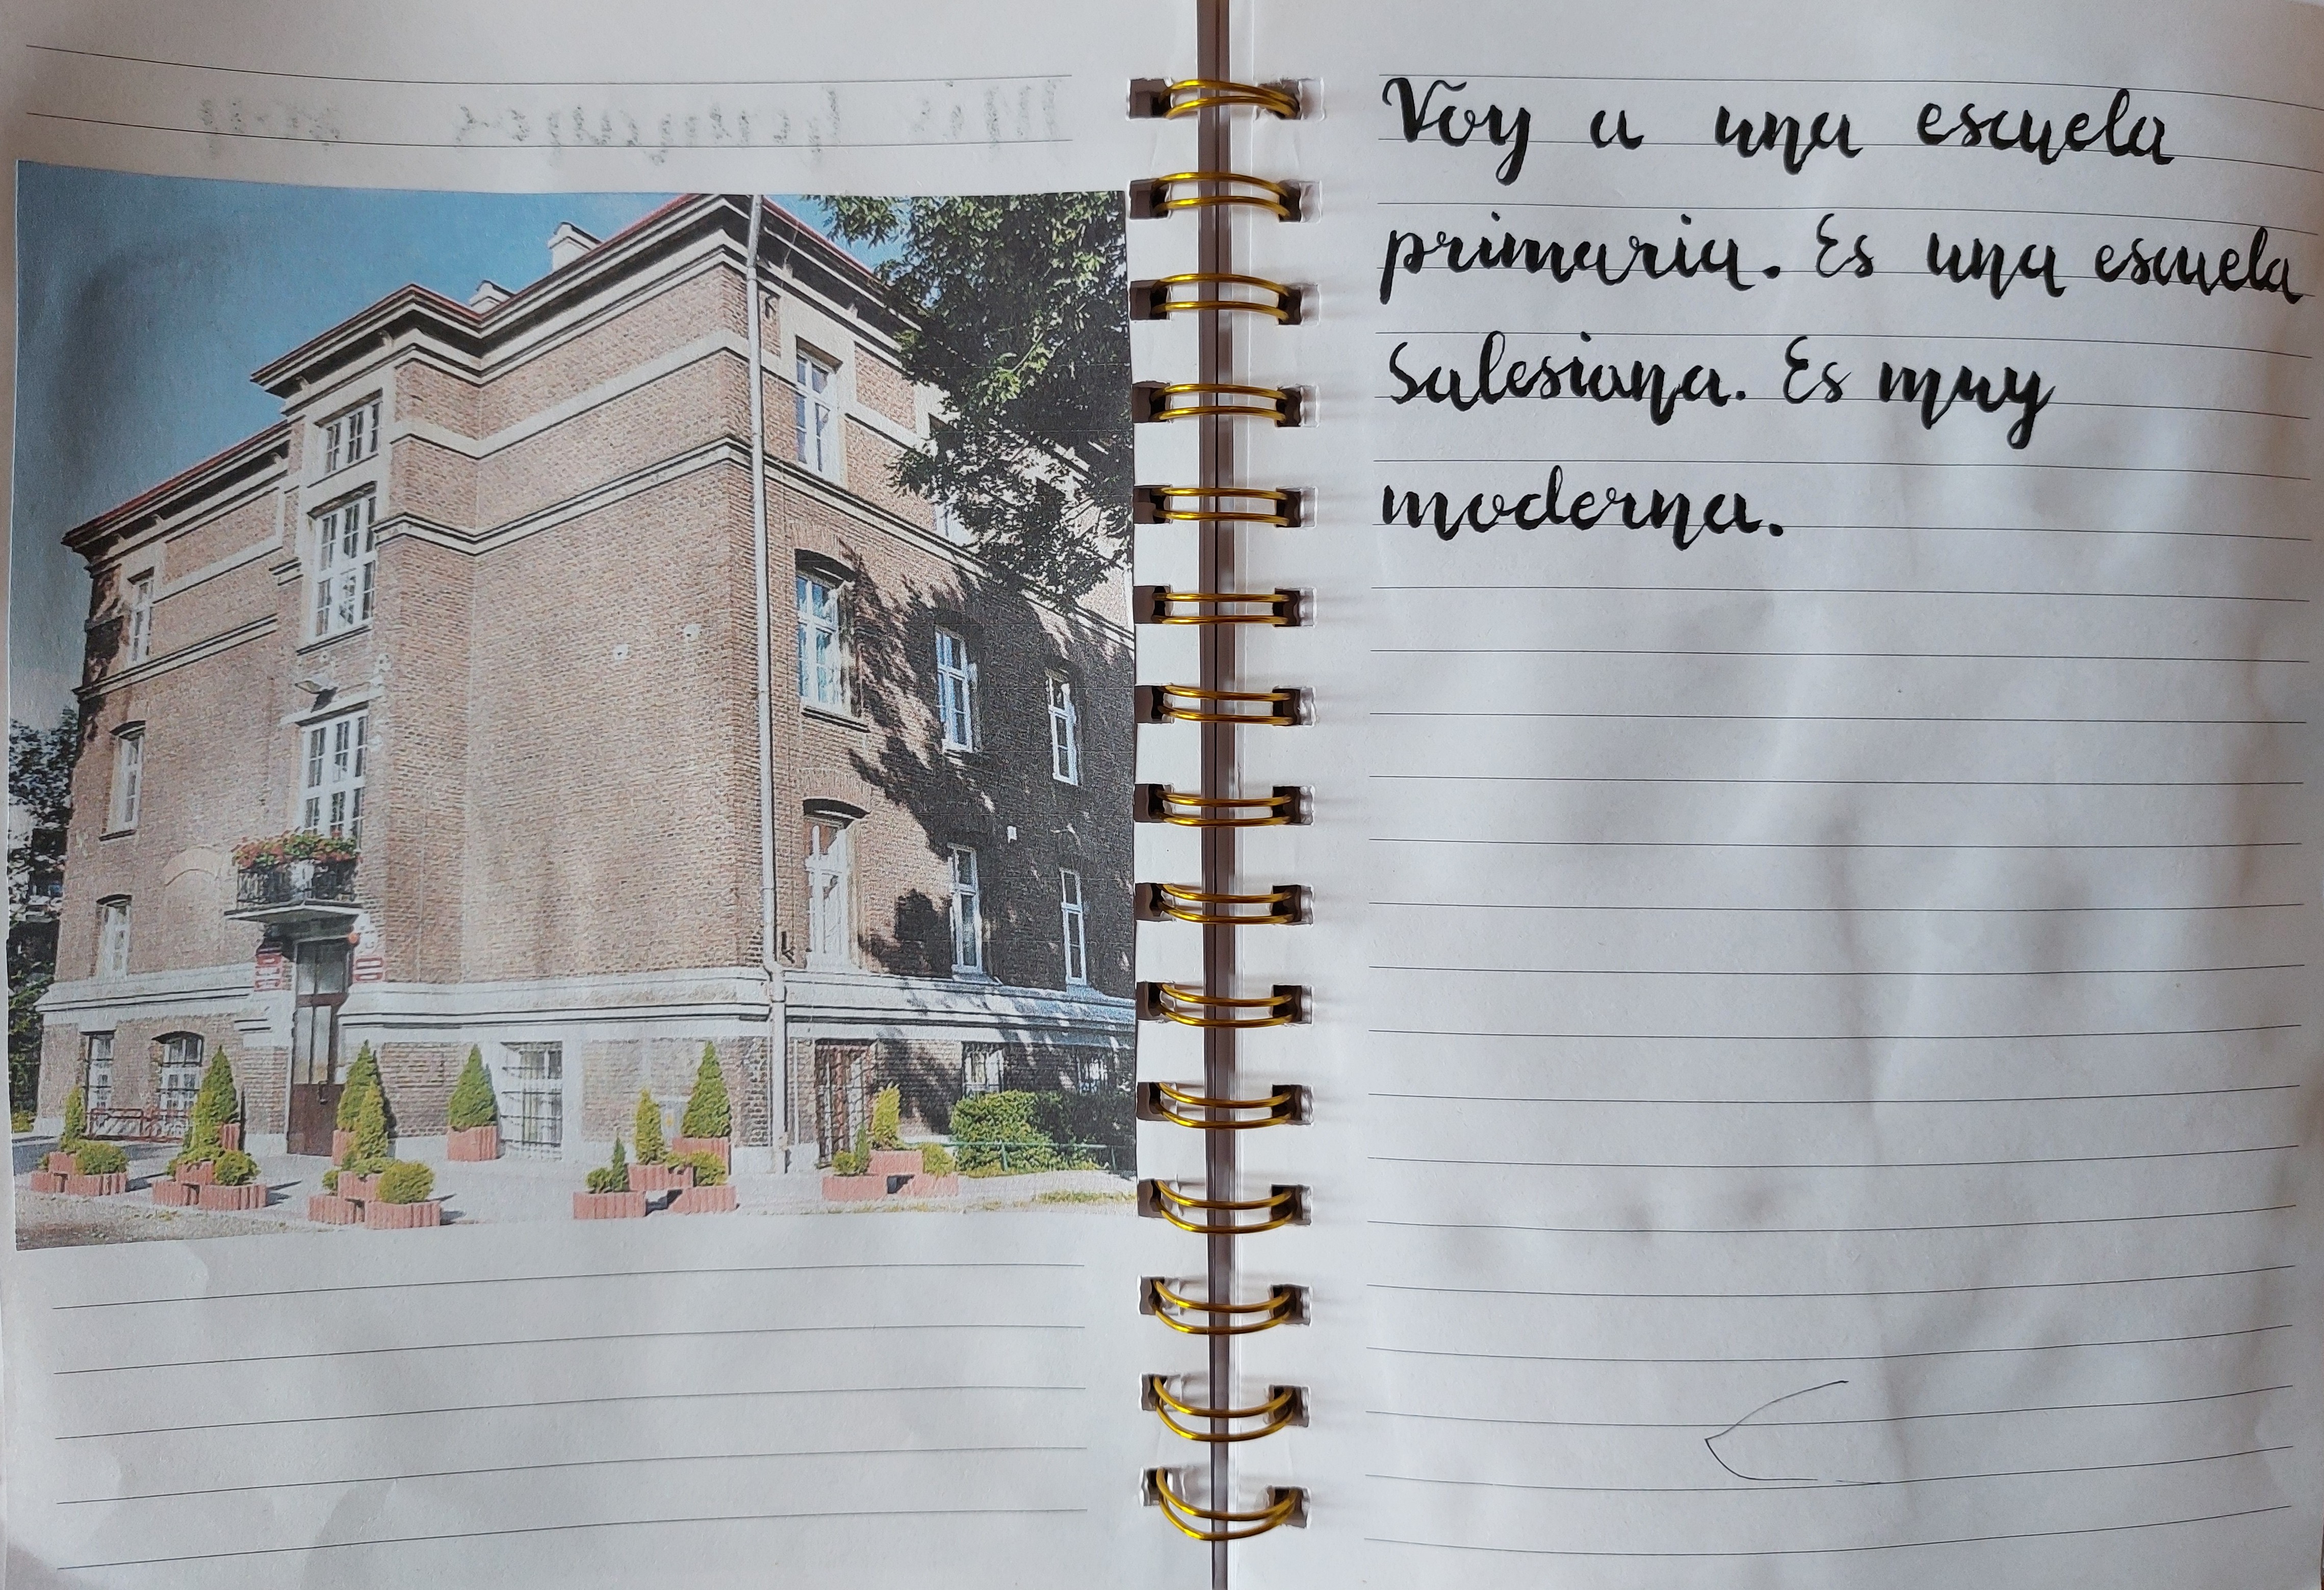 Voy a una escuela
primaria. Es una escuela
Salesiana. Es muy
moderna.